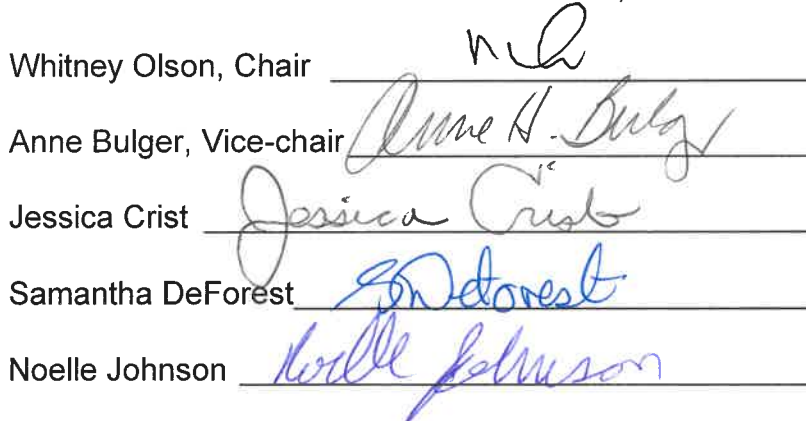 Whitney Olson, Chair
Anne Bulger, Vice-chair Anne H. Bulger
Jessica Crist Jessica Crist
Samantha DeForest SDeforest
Noelle Johnson Noelle Johnson